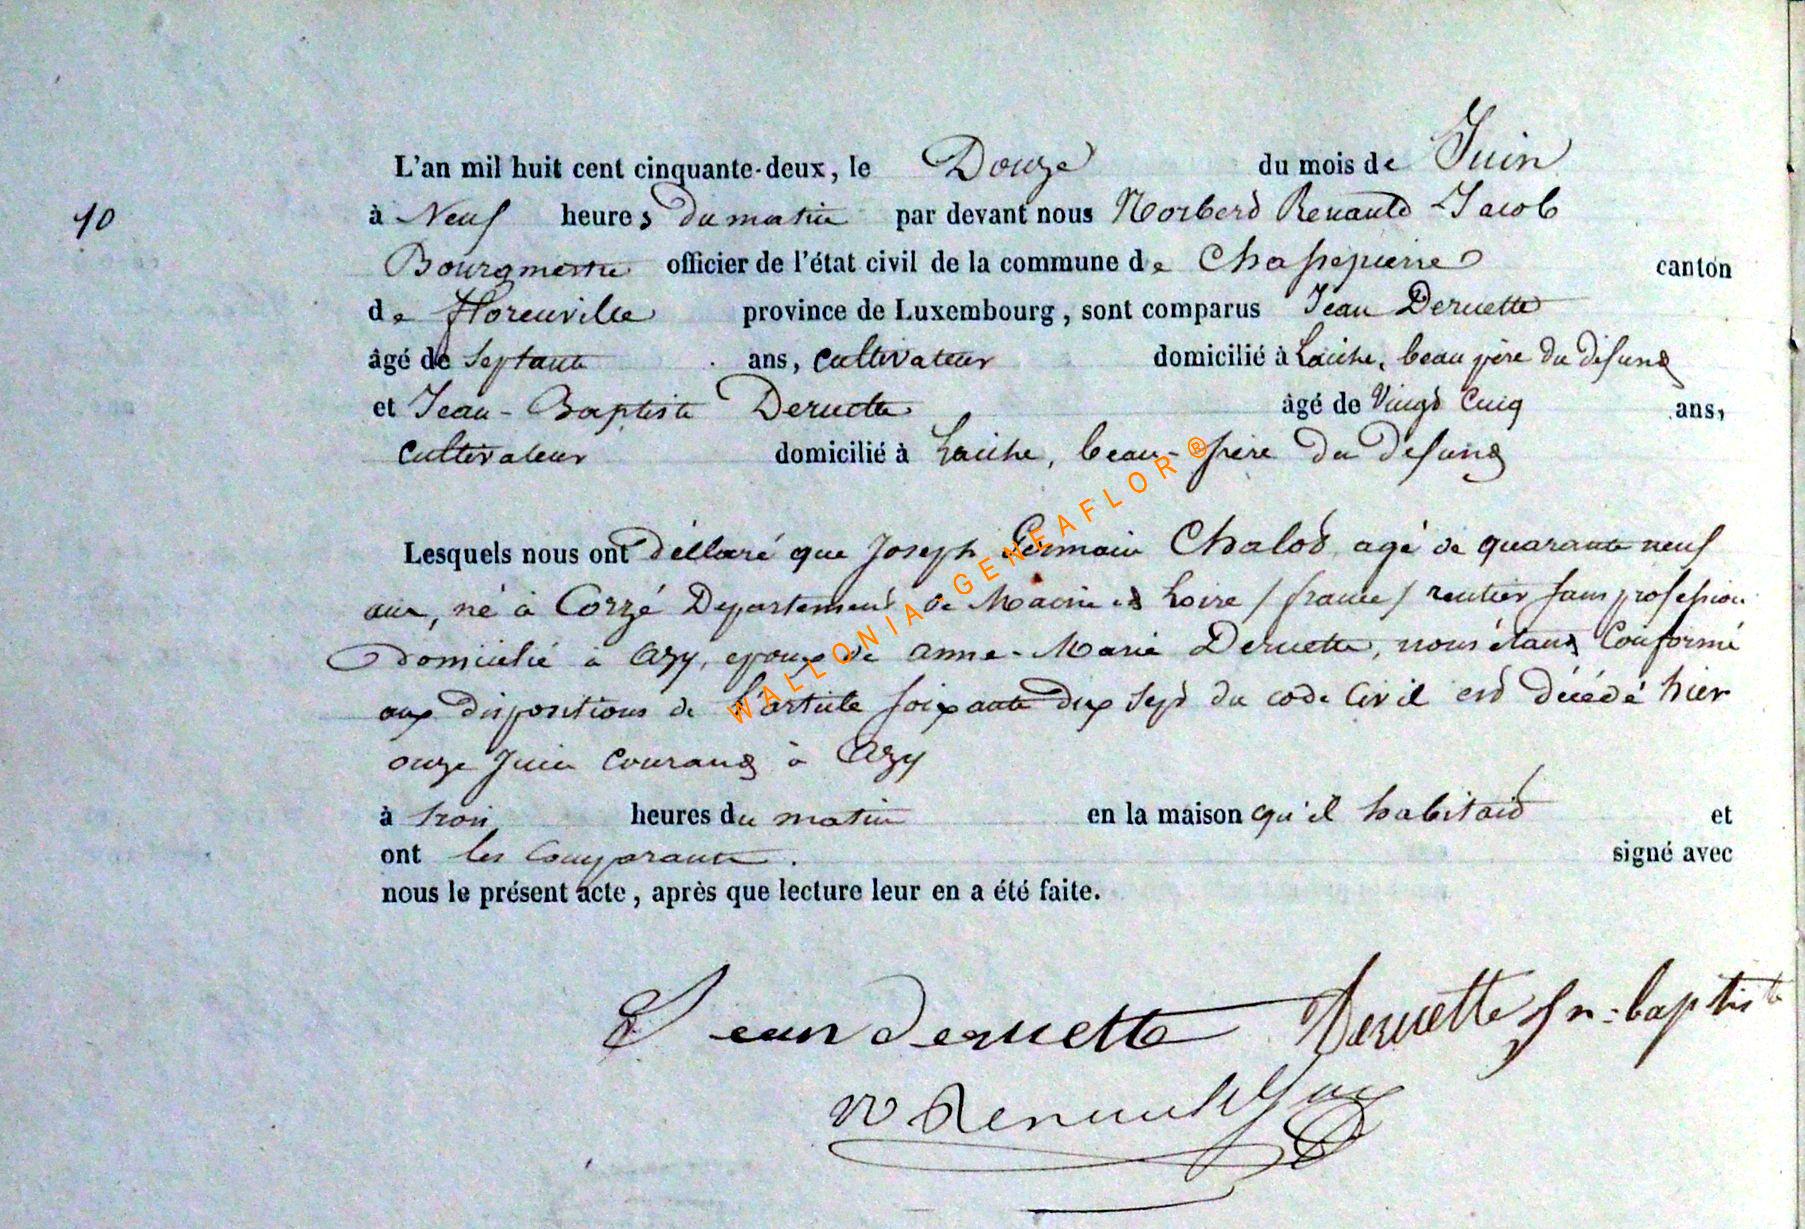 10
L'an mil huit cent cinquante-deux, le Douze du mois de Juin
à Neuf heures du matin par devant nous Norbert Renauld Jacob
Bourgmestre officier de l'état civil de la commune de Chassepierre canton
de florenville province de Luxembourg, sont comparus Jean Deruette
âgé de Septante ans, Cultivateur domicilié à Laiche, beau père du défunt
et Jean-Baptiste Deruette âgé de Vingt Cinq ans,
Cultivateur domicilié à Laiche, beau-frère du défunt
Lesquels nous ont déclaré que Joseph Germain Chalot agé de quarante neuf
ans, né à Corzé Departement de Maine et Loire / france / rentier sans profession
domicilié à Azy, epoux de anne-Marie Deruette, nous étant Conformé
aux dispositions de l'article soixante dix sept du code Civil est décédé hier
onze Juin Courant à Azy
à trois heures du matin en la maison qu'il habitait et
ont les Comparants. signé avec
nous le présent acte, après que lecture leur en a été faite.
Jean deruette Deruette Jn-baptiste
N Renauld Jac
WALLONIA-GENEAFLOR®